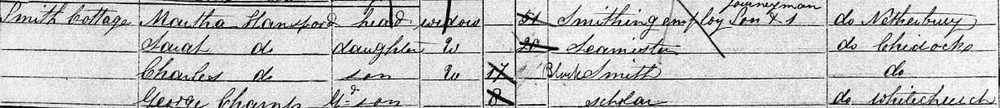 Smith Cottage Martha Hansford head widow 51 Smithing employ Son & 1 journeyman do Netherbury
Sarah do daughter U 20 Seamister do Chidock
Charles do son U 17 Black Smith do
George Champ Gd son 8 scholar do whitchurch